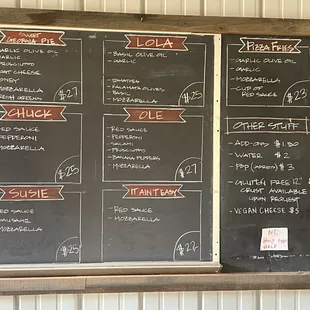 SWEET
GEORGIA PIE
GARLIC OLIVE OIL
GARLIC
PROSCIUTTO
GOAT CHEESE
HONEY
MOZZARELLA
FRESH GREENS
$27
LOLA
BASIL OLIVE OIL
GARLIC
TOMATOES
KALAMATA OLIVES
BASIL
MOZZARELLA
$25
PIZZA FRIES
GARLIC OLIVE OIL
GARLIC
MOZZARELLA
CUP OF
RED SAUCE
$23
CHUCK
RED SAUCE
PEPPERONI
MOZZARELLA
$25
OLE
RED SAUCE
PEPPERONI
SALAMI
PROSCIUTTO
BANANA PEPPERS
MOZZARELLA
$27
OTHER STUFF
ADD-ONS $1.50
WATER $2
POP $3
GLUTEN FREE 12"
CRUST AVAILABLE
UPON
REQUEST
VEGAN CHEESE $5
SUSIE
RED SAUCE
SAUSAGE
MOZZARELLA
$25
IT AIN'T EASY
RED SAUCE
MOZZARELLA
$22
NO
HALF